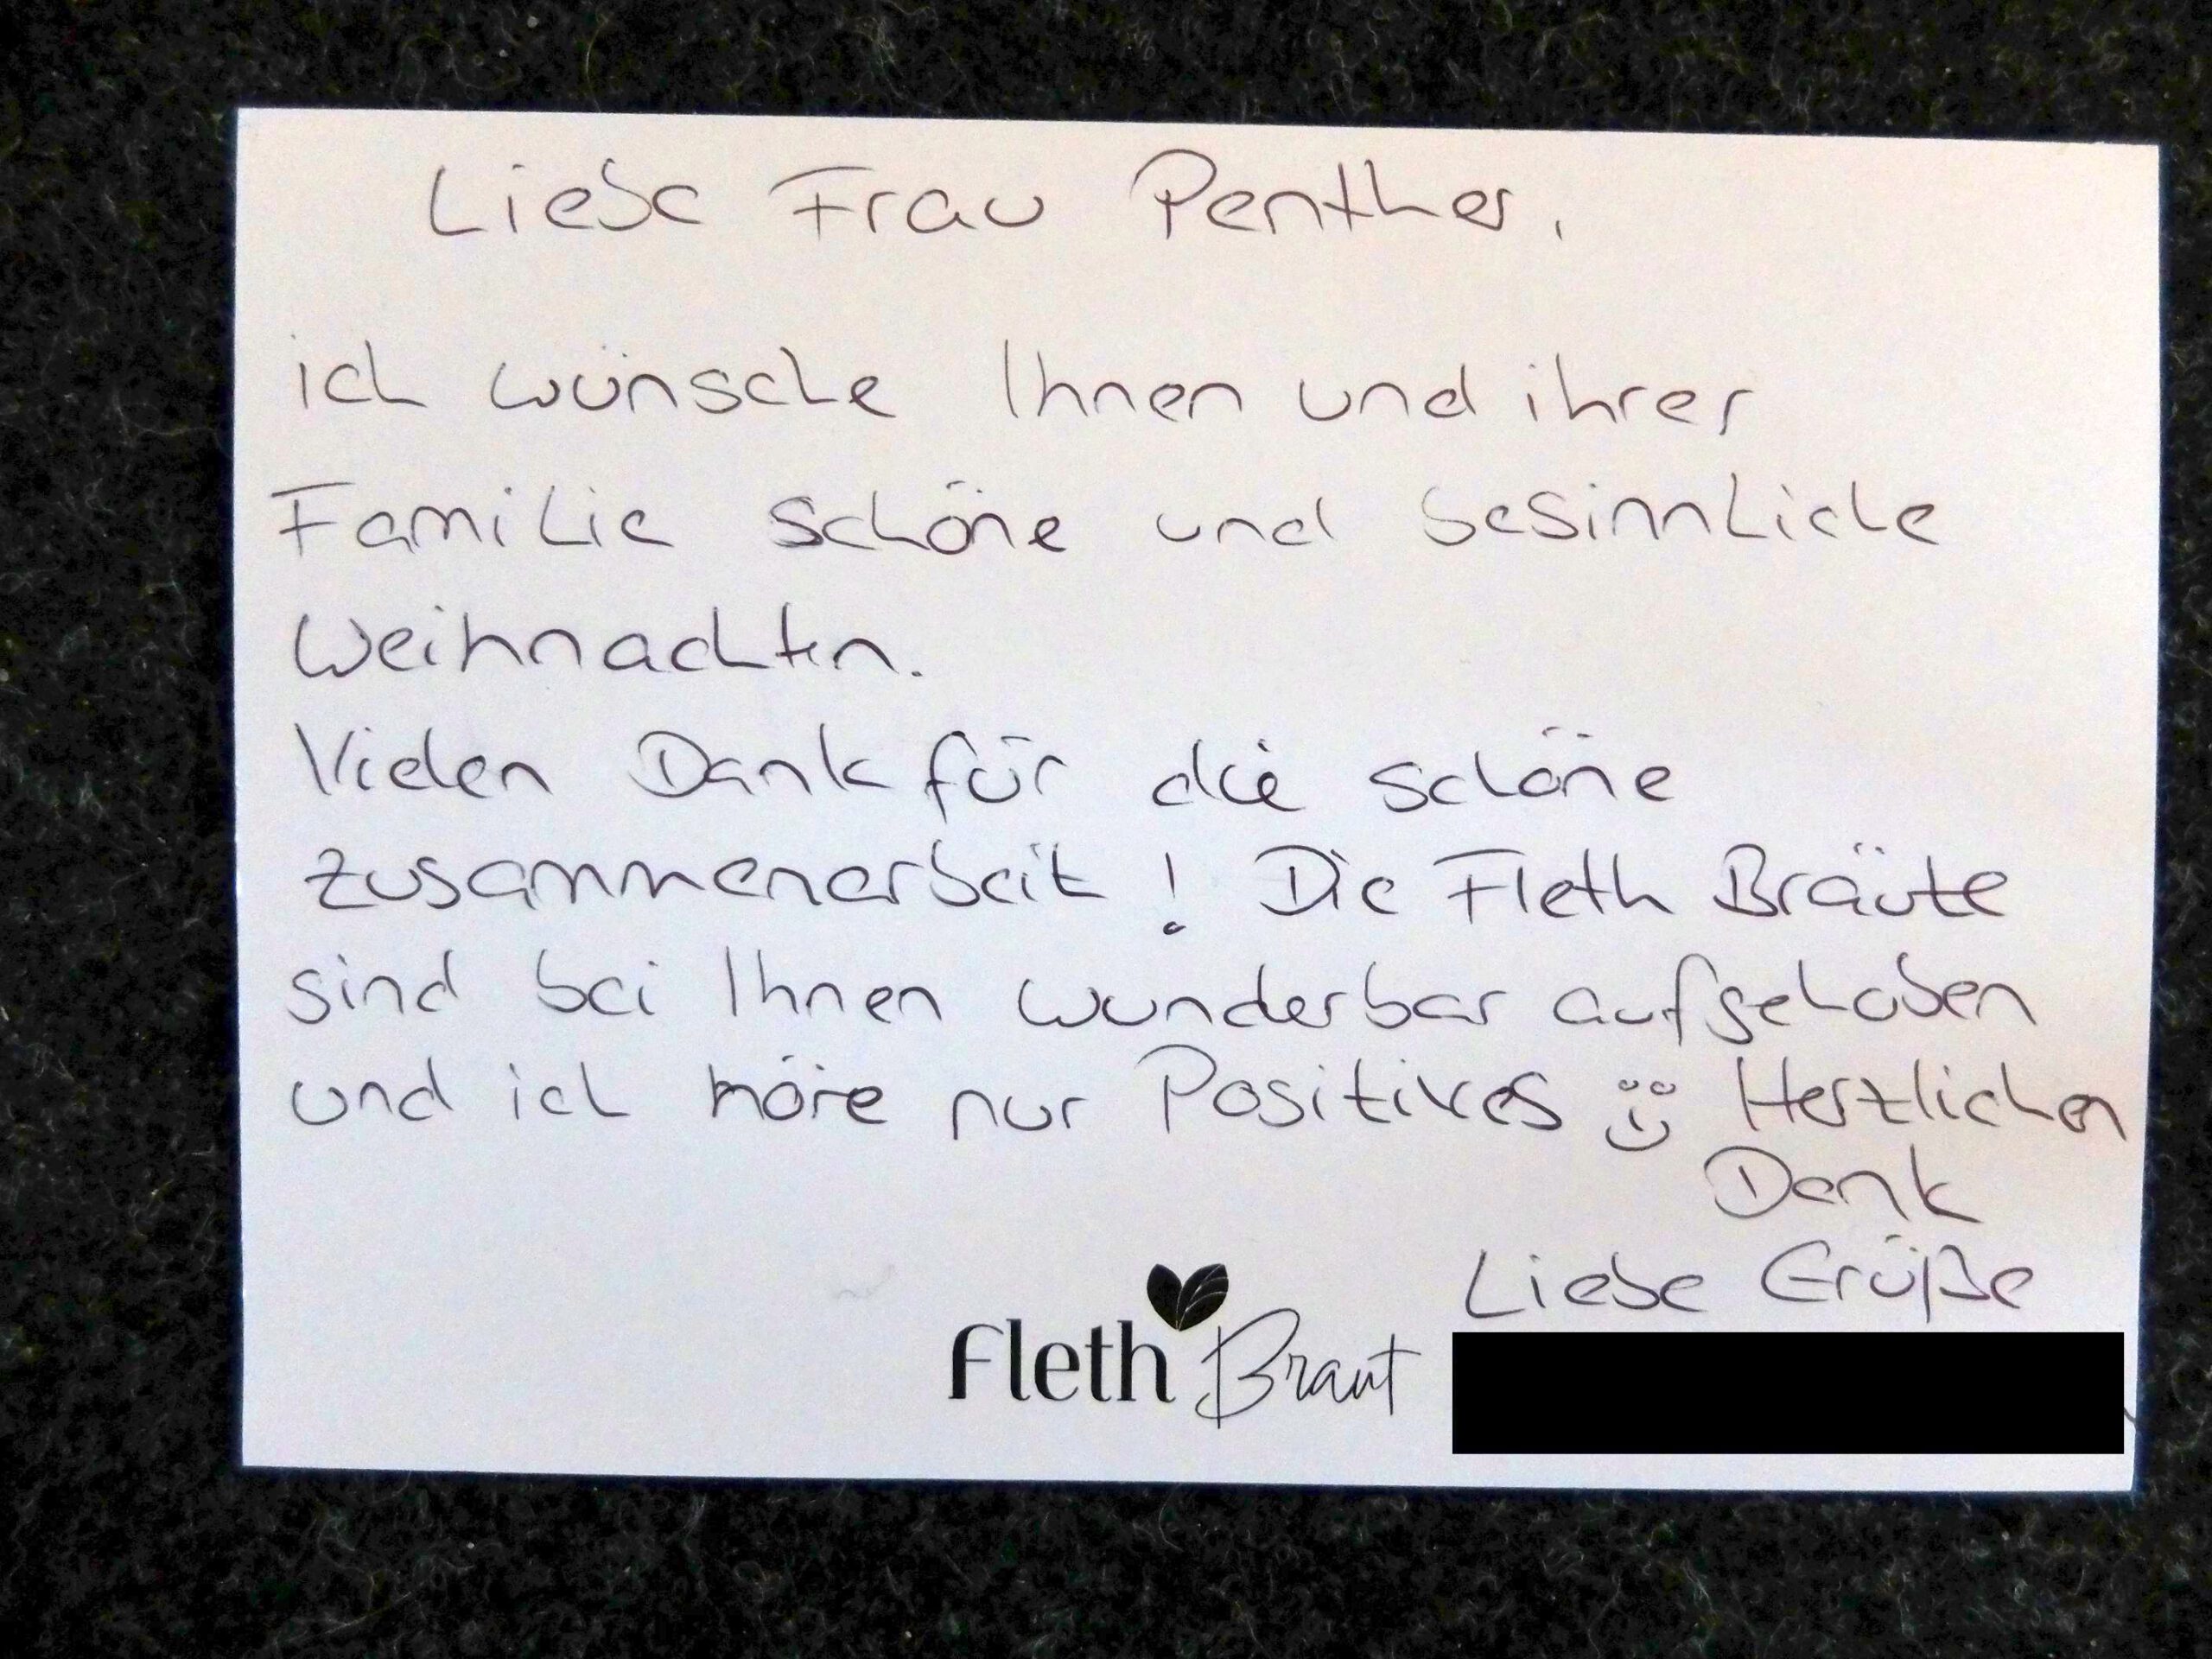 Liebe Frau Penther,
ich wünsche Ihnen und ihrer
Familie schöne und besinnliche
Weihnachten.
Vielen Dank für die schöne
Zusammenarbeit! Die Fleth Bräute
sind bei Ihnen wunderbar aufgehoben
und ich höre nur Positives Herzlichen
Dank
Liebe Grüße
Fleth Braut